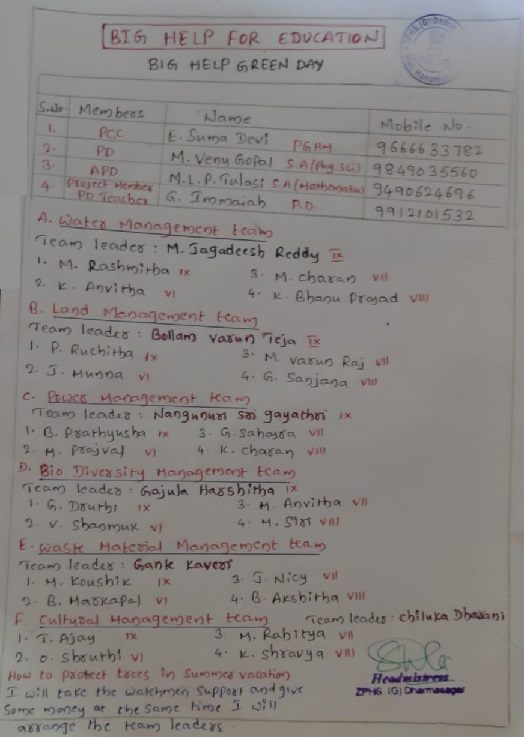 BIG HELP FOR EDUCATION
BIG HELP GREEN DAY
S.No Members Name Mobile No.
1. PCC E. Suma Devi PGHM 9666633782
2. PD M. Venu Gopal S.A(Phy.Sci) 9849035560
3. APD M.L.P. Tulasi S.A(Mathematics) 9490624696
4. Project Member PD Teacher G. Immaiah P.D. 9912101532
A. Water Management team
Team leader : M. Jagadeesh Reddy IX
1. M. Rashmitha IX 3. M. charan VII
2. K. Anvitha VI 4. K. Bhanu Prasad VIII
B. Land Management team
Team leader : Bollam Varun Teja IX
1. P. Ruchitha IX 3. M. Varun Raj VII
2. J. Munna VI 4. G. Sanjana VIII
C. Power Management team
Team leader : Nangunuri Sri gayathri IX
1. B. Prathyusha IX 3. G. Sahasra VII
2. M. Prajval VI 4. K. charan VIII
D. Bio Diversity Management team
Team leader : Gajula Harshitha IX
1. G. Druthi IX 3. M. Anvitha VII
2. V. Shanmuk VI 4. M. Siri VIII
E. Waste Material Management team
Team leader : Gank Kaveri
1. M. Koushik IX 3. J. Nicy VII
2. B. Markapal VI 4. B. Akshitha VIII
F. Cultural Management team Team leader : chiluka Dharani
1. T. Ajay IX 3. M. Rahitya VII
2. O. Shruthi VI 4. K. Shravya VIII
How to protect trees in Summer vacation
I will take the watchmen Support and give
Some money at the Same time I will
arrange the team leaders.
Headmistress
ZPHS (G) Dharmasagar